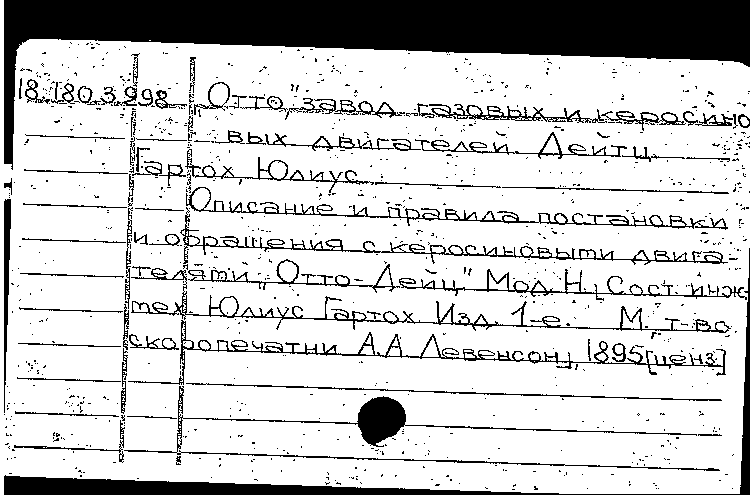 18.180.3.298 „Отто", завод газовых и керосино
вых двигателей. Дейтц.
Гартох, Юлиус
Описание и правила постановки
и обращения с керосиновыми двига-
телями „Отто-Дейц" Мод. Н., Сост. инж-
тех. Юлиус Гартох Изд. 1-е. М., т-во
скоропечатни А.А. Левенсон, 1895 [ценз]